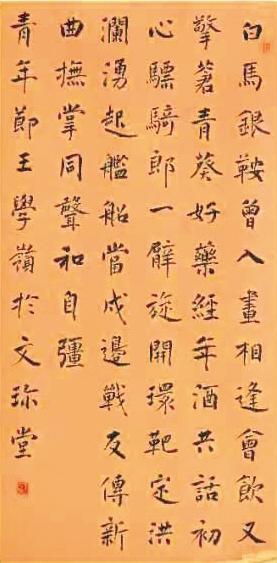 白馬銀鞍曾入畫相逢會飲又
擎箬青葵好藥經年酒共話初
心驃騎郎一臂旋開環靶定洪
瀾湧起艦船當戍邊戰友傳新
曲撫掌同聲和自彊
青年節王學嶺於文珎堂